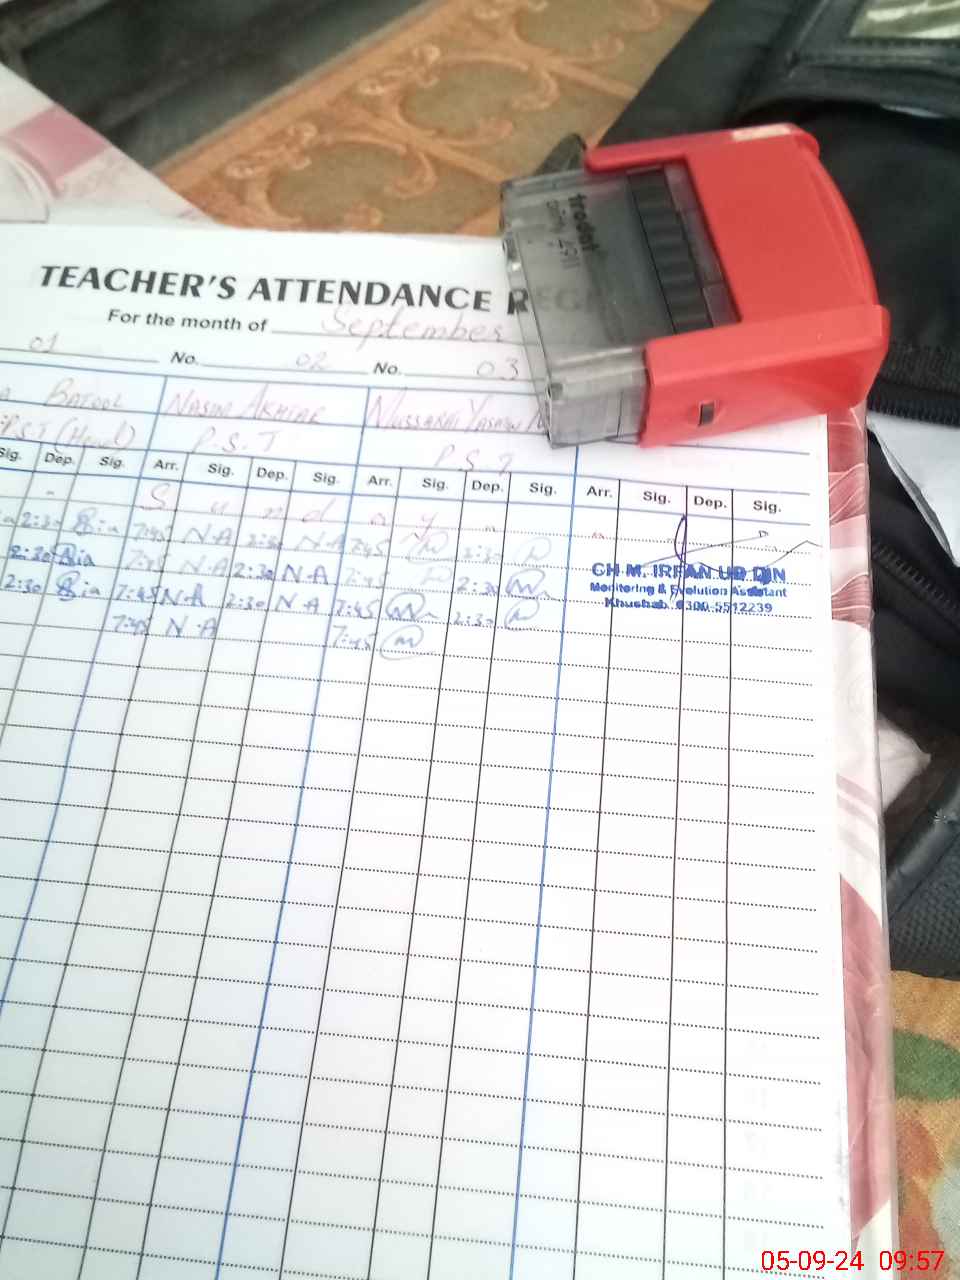 trodat
printy 4911
TEACHER'S ATTENDANCE REG
For the month of September
01 No. 02 No. 03
BATOOL NASIM AKHTAR MUSSARAT
P.S.T (Head) P.S.T P.S.T
Sig. Dep. Sig. Arr. Sig. Dep. Sig. Arr. Sig. Dep. Sig. Arr. Sig. Dep. Sig.
S u n d a y
2:30 7:45 N.A 2:30 N.A 7:45 2:30
2:30 7:45 N.A 2:30 N.A 7:45 2:30
2:30 7:45 N.A 2:30 N.A 7:45 2:30
7:45 N.A 7:45
CH M. IRFAN UD DIN
Monitoring & Evolution Assistant
Khushab. 0300-5512239
05-09-24 09:57